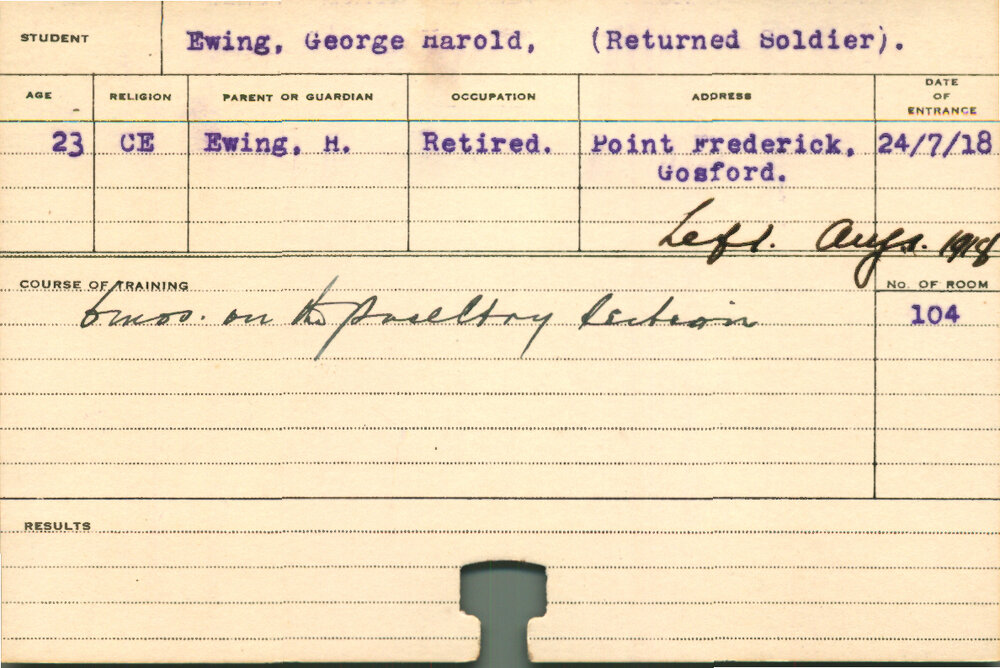 STUDENT Ewing, George Harold, (Returned Soldier).
AGE RELIGION PARENT OR GUARDIAN OCCUPATION ADDRESS DATE OF ENTRANCE
23 CE Ewing, H. Retired. Point Frederick, 24/7/18
Gosford.
Left. Augs. 1918
COURSE OF TRAINING No. OF ROOM
6 mos. on the poultry section 104
RESULTS